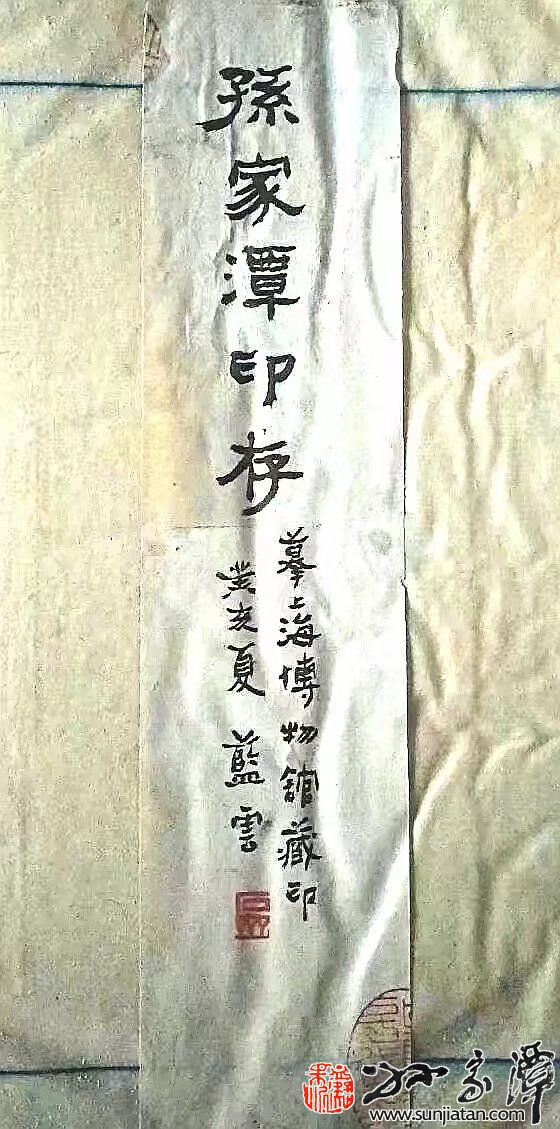 孫家潭印存
摹上海博物館藏印
癸亥夏 藍雲
孙家潭
www.sunjiatan.com